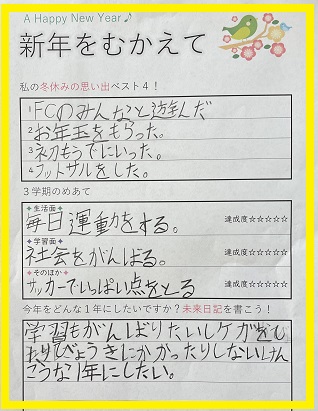 A Happy New Year♪
新年をむかえて
私の冬休みの思い出ベスト４！
1 FCのみんなと遊んだ
2 お年玉をもらった。
3 初もうでにいった。
4 フットサルをした。
３学期のめあて
✦生活面✦
毎日運動をする。 達成度☆☆☆☆☆
✦学習面✦
社会をがんばる。 達成度☆☆☆☆☆
✦そのほか✦
サッカーでいっぱい点をとる 達成度☆☆☆☆☆
今年をどんな１年にしたいですか？未来日記を書こう！
学習もがんばりたいしケガをし
たりびょうきにかかったりしないけん
こうな1年にしたい。